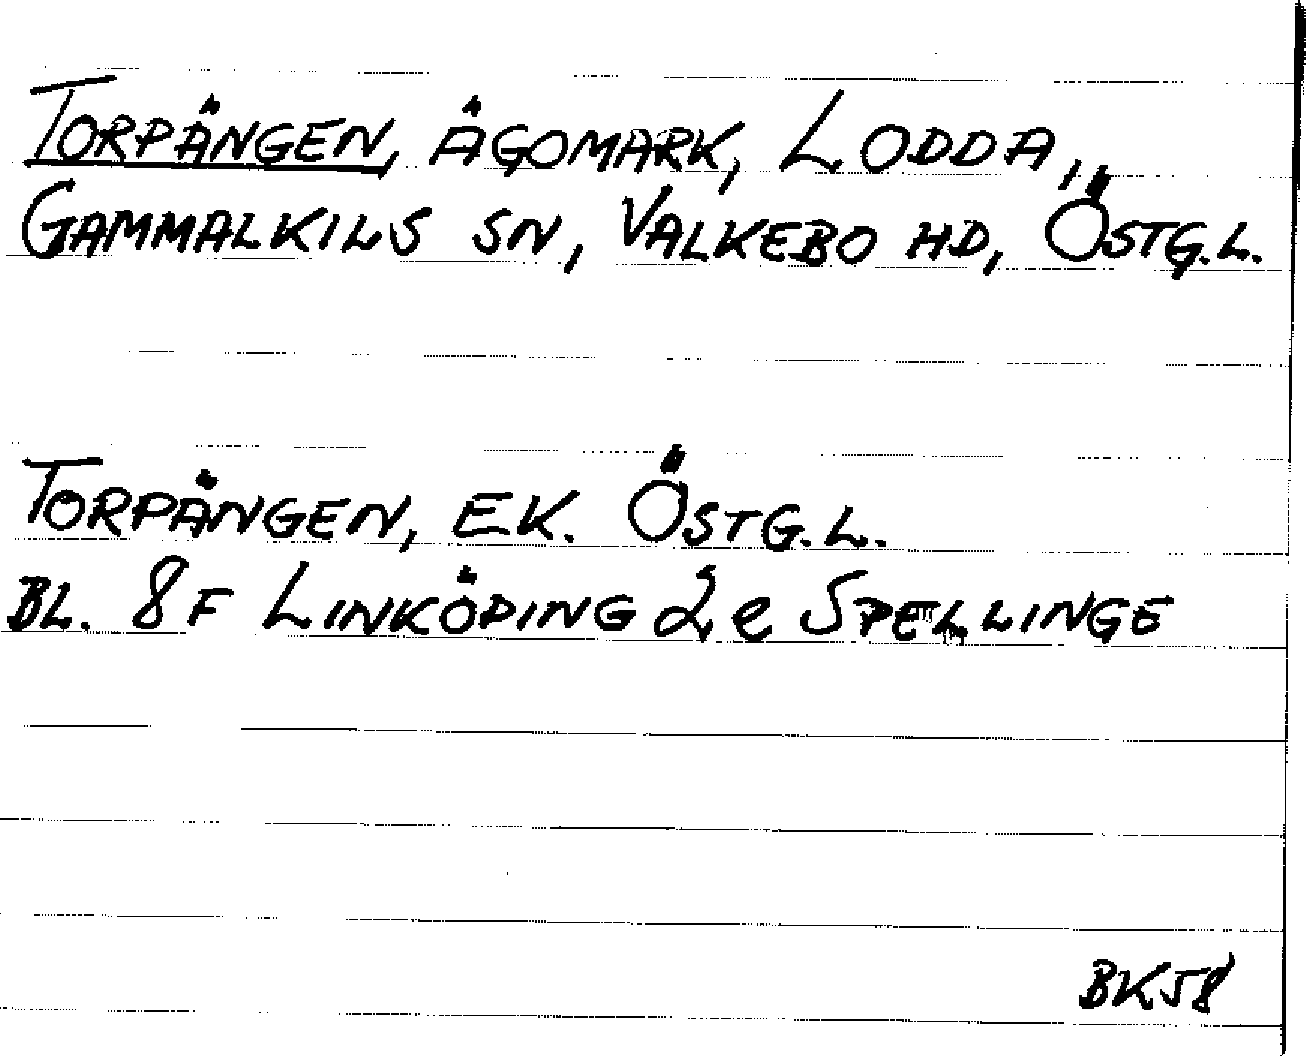 TORPÄNGEN, ÄGOMARK, LODDA,
GAMMALKILS SN, VALKEBO HD, ÖSTG.L.
TORPÄNGEN, EK. ÖSTG.L.
BL. 8F LINKÖPING 2e SPELLINGE
BK58